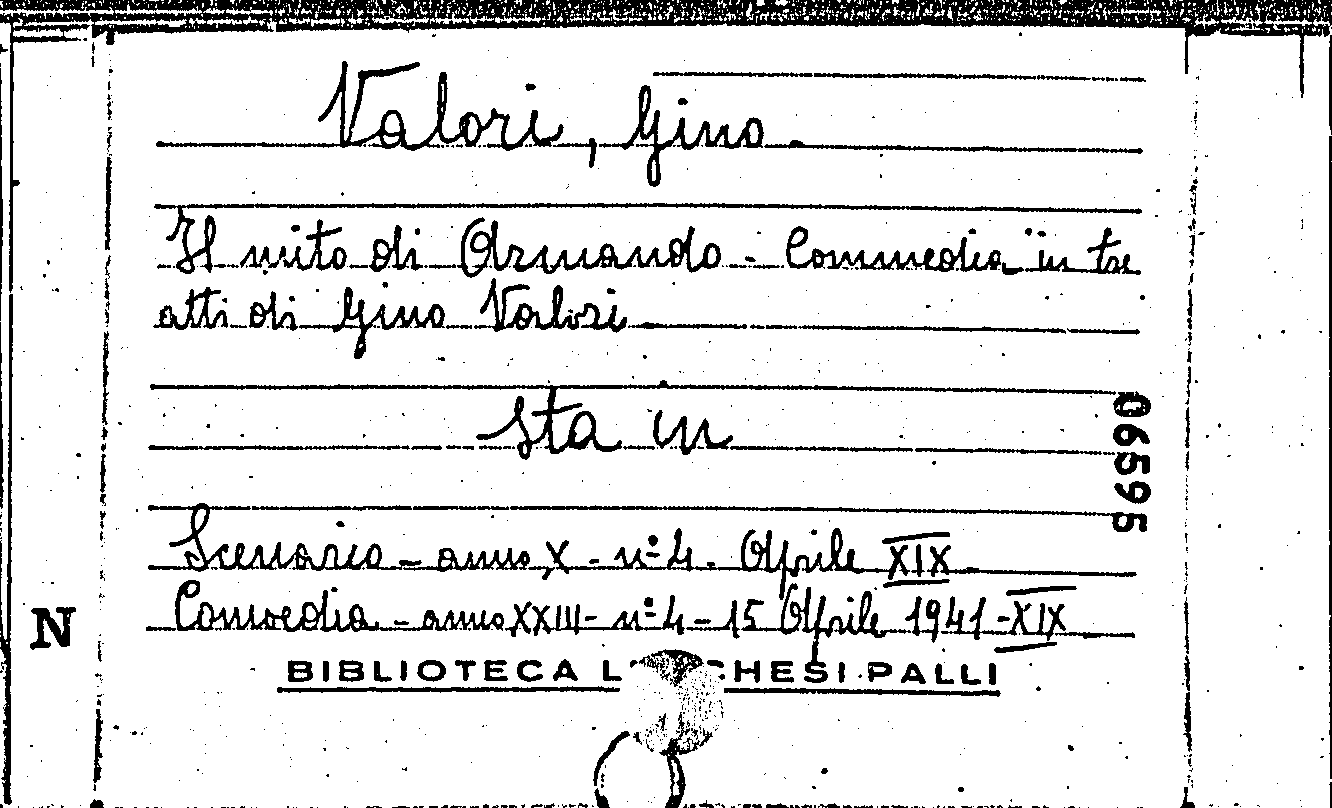 Valori, Gino.
Il mito di Armando - Commedia in tre
atti di Gino Valori
sta in
Scenario - anno X - nº 4 - Aprile XIX -
Comoedia - anno XXIII - nº 4 - 15 Aprile 1941 - XIX
06595
N
BIBLIOTECA L CHESI PALLI